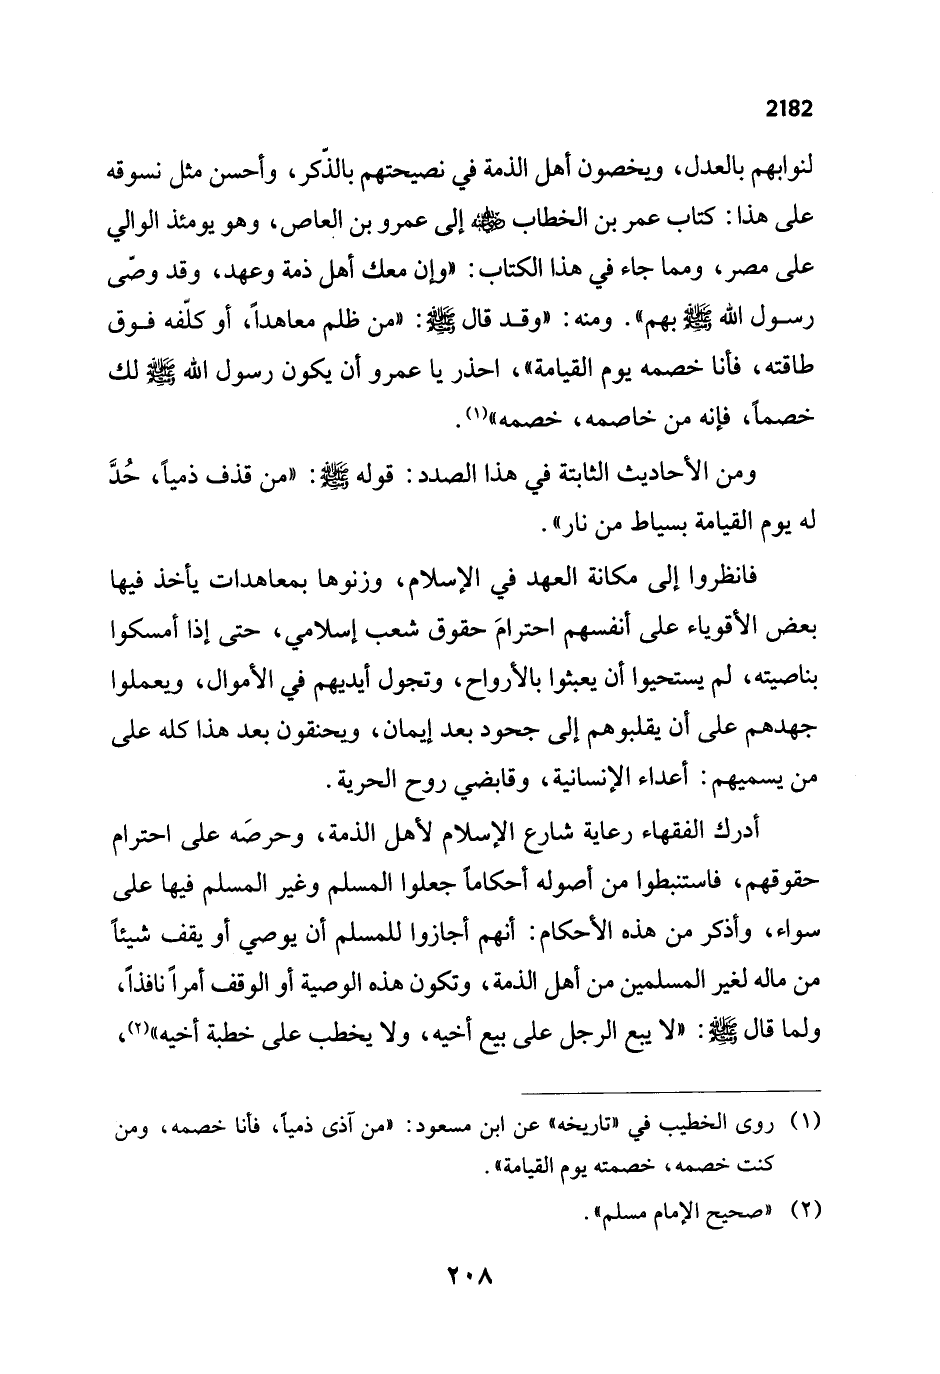 2182
لنوابهم بالعدل، ويخصون أهل الذمة في نصيحتهم بالذّكر، وأحسن مثل نسوقه
على هذا: كتاب عمر بن الخطاب رضي الله عنه إلى عمرو بن العاص، وهو يومئذ الوالي
على مصر، ومما جاء في هذا الكتاب: «وإن معك أهل ذمة وعهد، وقد وصّى
رسول الله ﷺ بهم». ومنه: «وقد قال ﷺ: «من ظلم معاهداً، أو كلّفه فوق
طاقته، فأنا خصمه يوم القيامة»، احذر يا عمرو أن يكون رسول الله ﷺ لك
خصماً، فإنه من خاصمه، خصمه»(١).
ومن الأحاديث الثابتة في هذا الصدد: قوله ﷺ: «من قذف ذمياً، حُدَّ
له يوم القيامة بسياط من نار».
فانظروا إلى مكانة العهد في الإسلام، وزنوها بمعاهدات يأخذ فيها
بعض الأقوياء على أنفسهم احترامَ حقوق شعب إسلامي، حتى إذا أمسكوا
بناصيته، لم يستحيوا أن يعبثوا بالأرواح، وتجول أيديهم في الأموال، ويعملوا
جهدهم على أن يقلبوهم إلى جحود بعد إيمان، ويحنقون بعد هذا كله على
من يسميهم: أعداء الإنسانية، وقابضي روح الحرية.
أدرك الفقهاء رعاية شارع الإسلام لأهل الذمة، وحرصَه على احترام
حقوقهم، فاستنبطوا من أصوله أحكاماً جعلوا المسلم وغير المسلم فيها على
سواء، وأذكر من هذه الأحكام: أنهم أجازوا للمسلم أن يوصي أو يقف شيئاً
من ماله لغير المسلمين من أهل الذمة، وتكون هذه الوصية أو الوقف أمراً نافذاً،
ولما قال ﷺ: «لا يبع الرجل على بيع أخيه، ولا يخطب على خطبة أخيه»(٢)،
(١) روى الخطيب في «تاريخه» عن ابن مسعود: «من آذى ذمياً، فأنا خصمه، ومن
كنت خصمه، خصمته يوم القيامة».
(٢) «صحيح الإمام مسلم».
٢٠٨